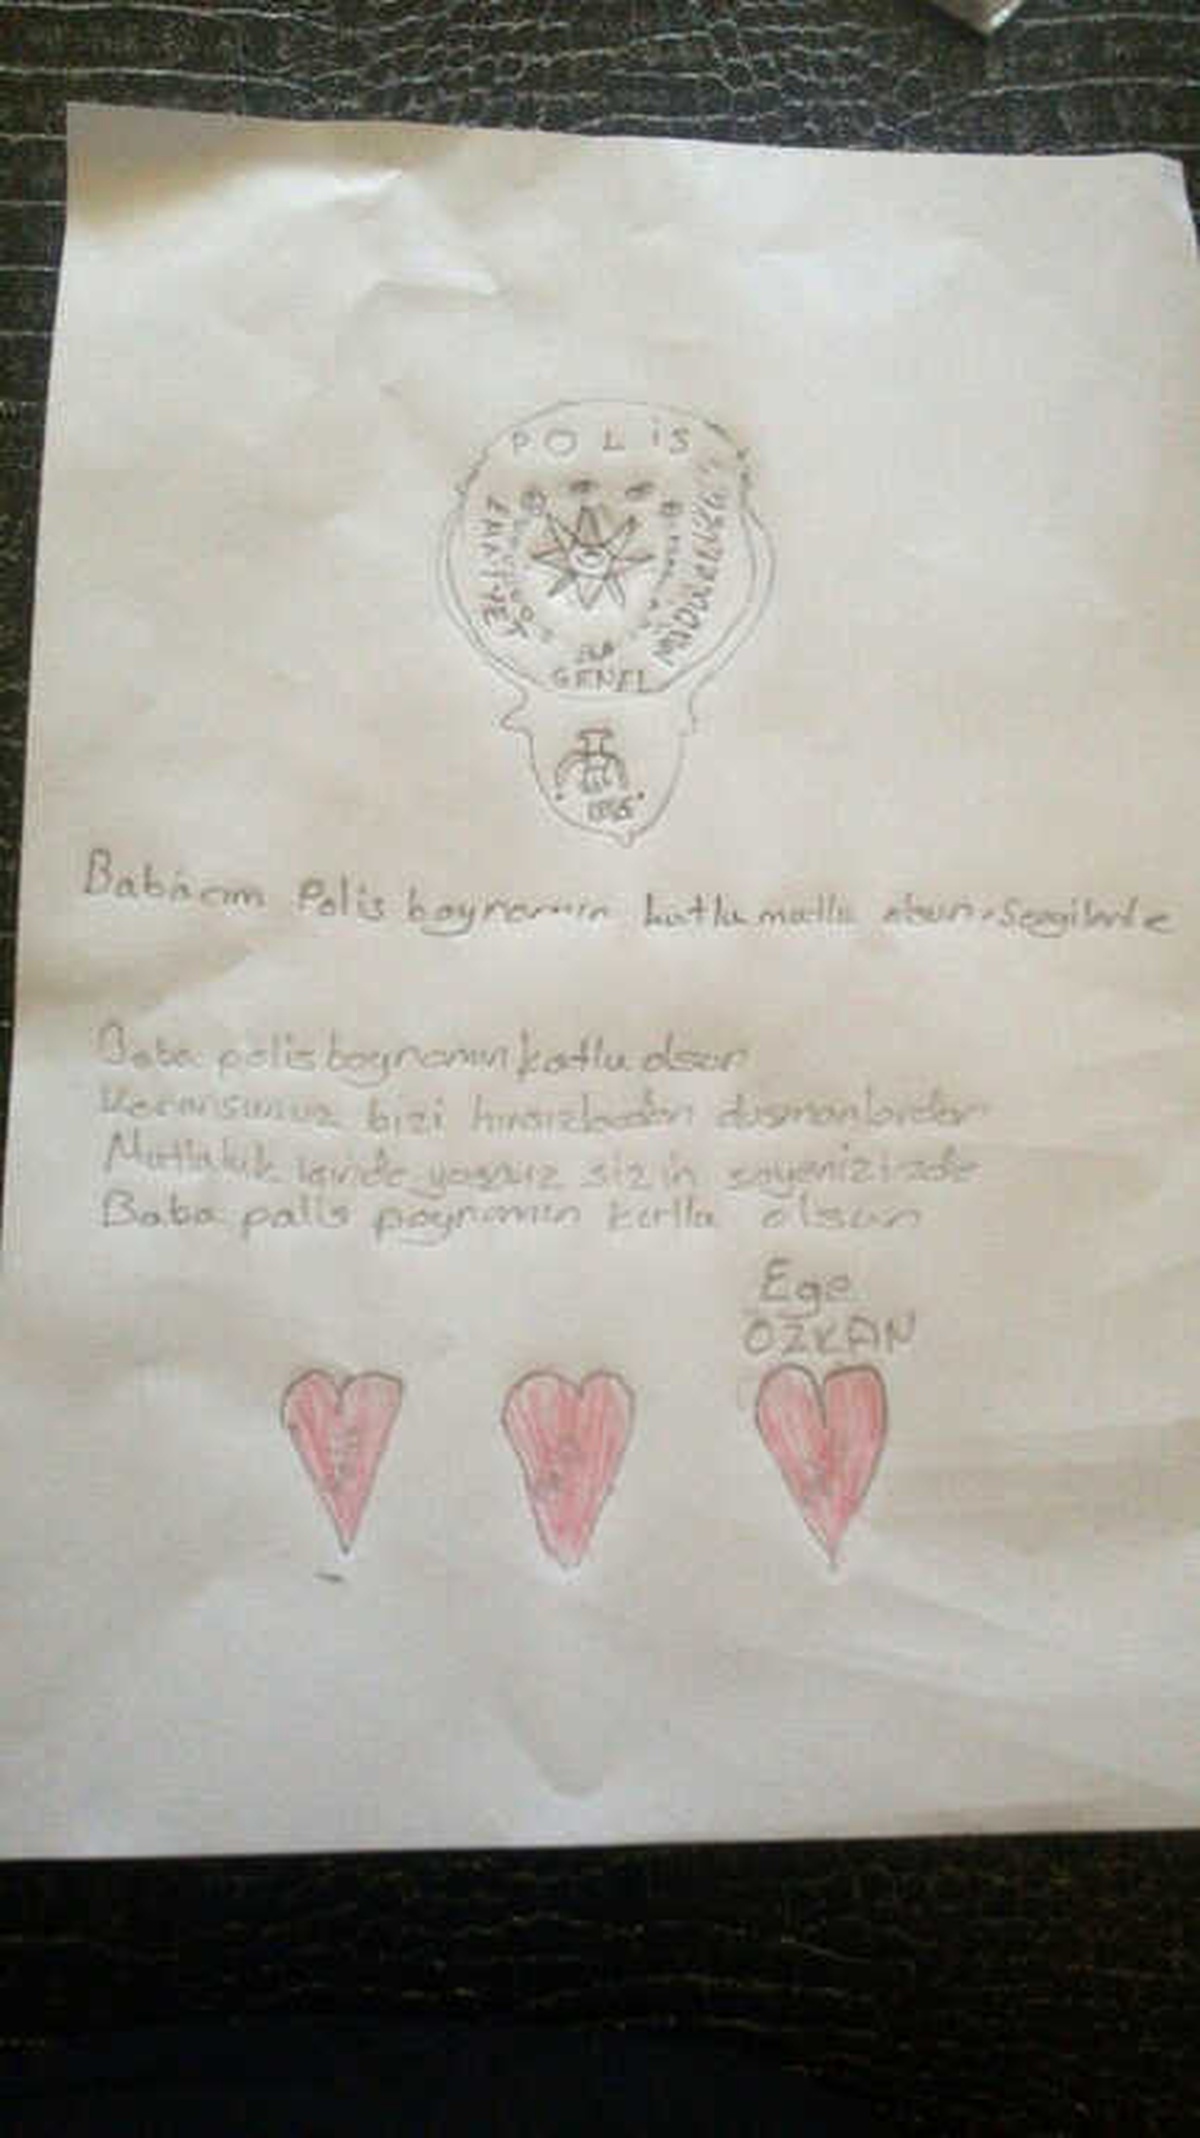 POLİS
EMNİYET
MÜDÜRLÜĞÜ
GENEL
Babacım Polis bayramının kutlu mutlu olsun. Sevgilerle
Baba polis bayramının kutlu olsun
bizi hırsızlardan düşmanlardan
Mutlulık içinde yaşarız sizin sayenizizde
Baba palis payramının kutlu olsun
Ege
ÖZKAN